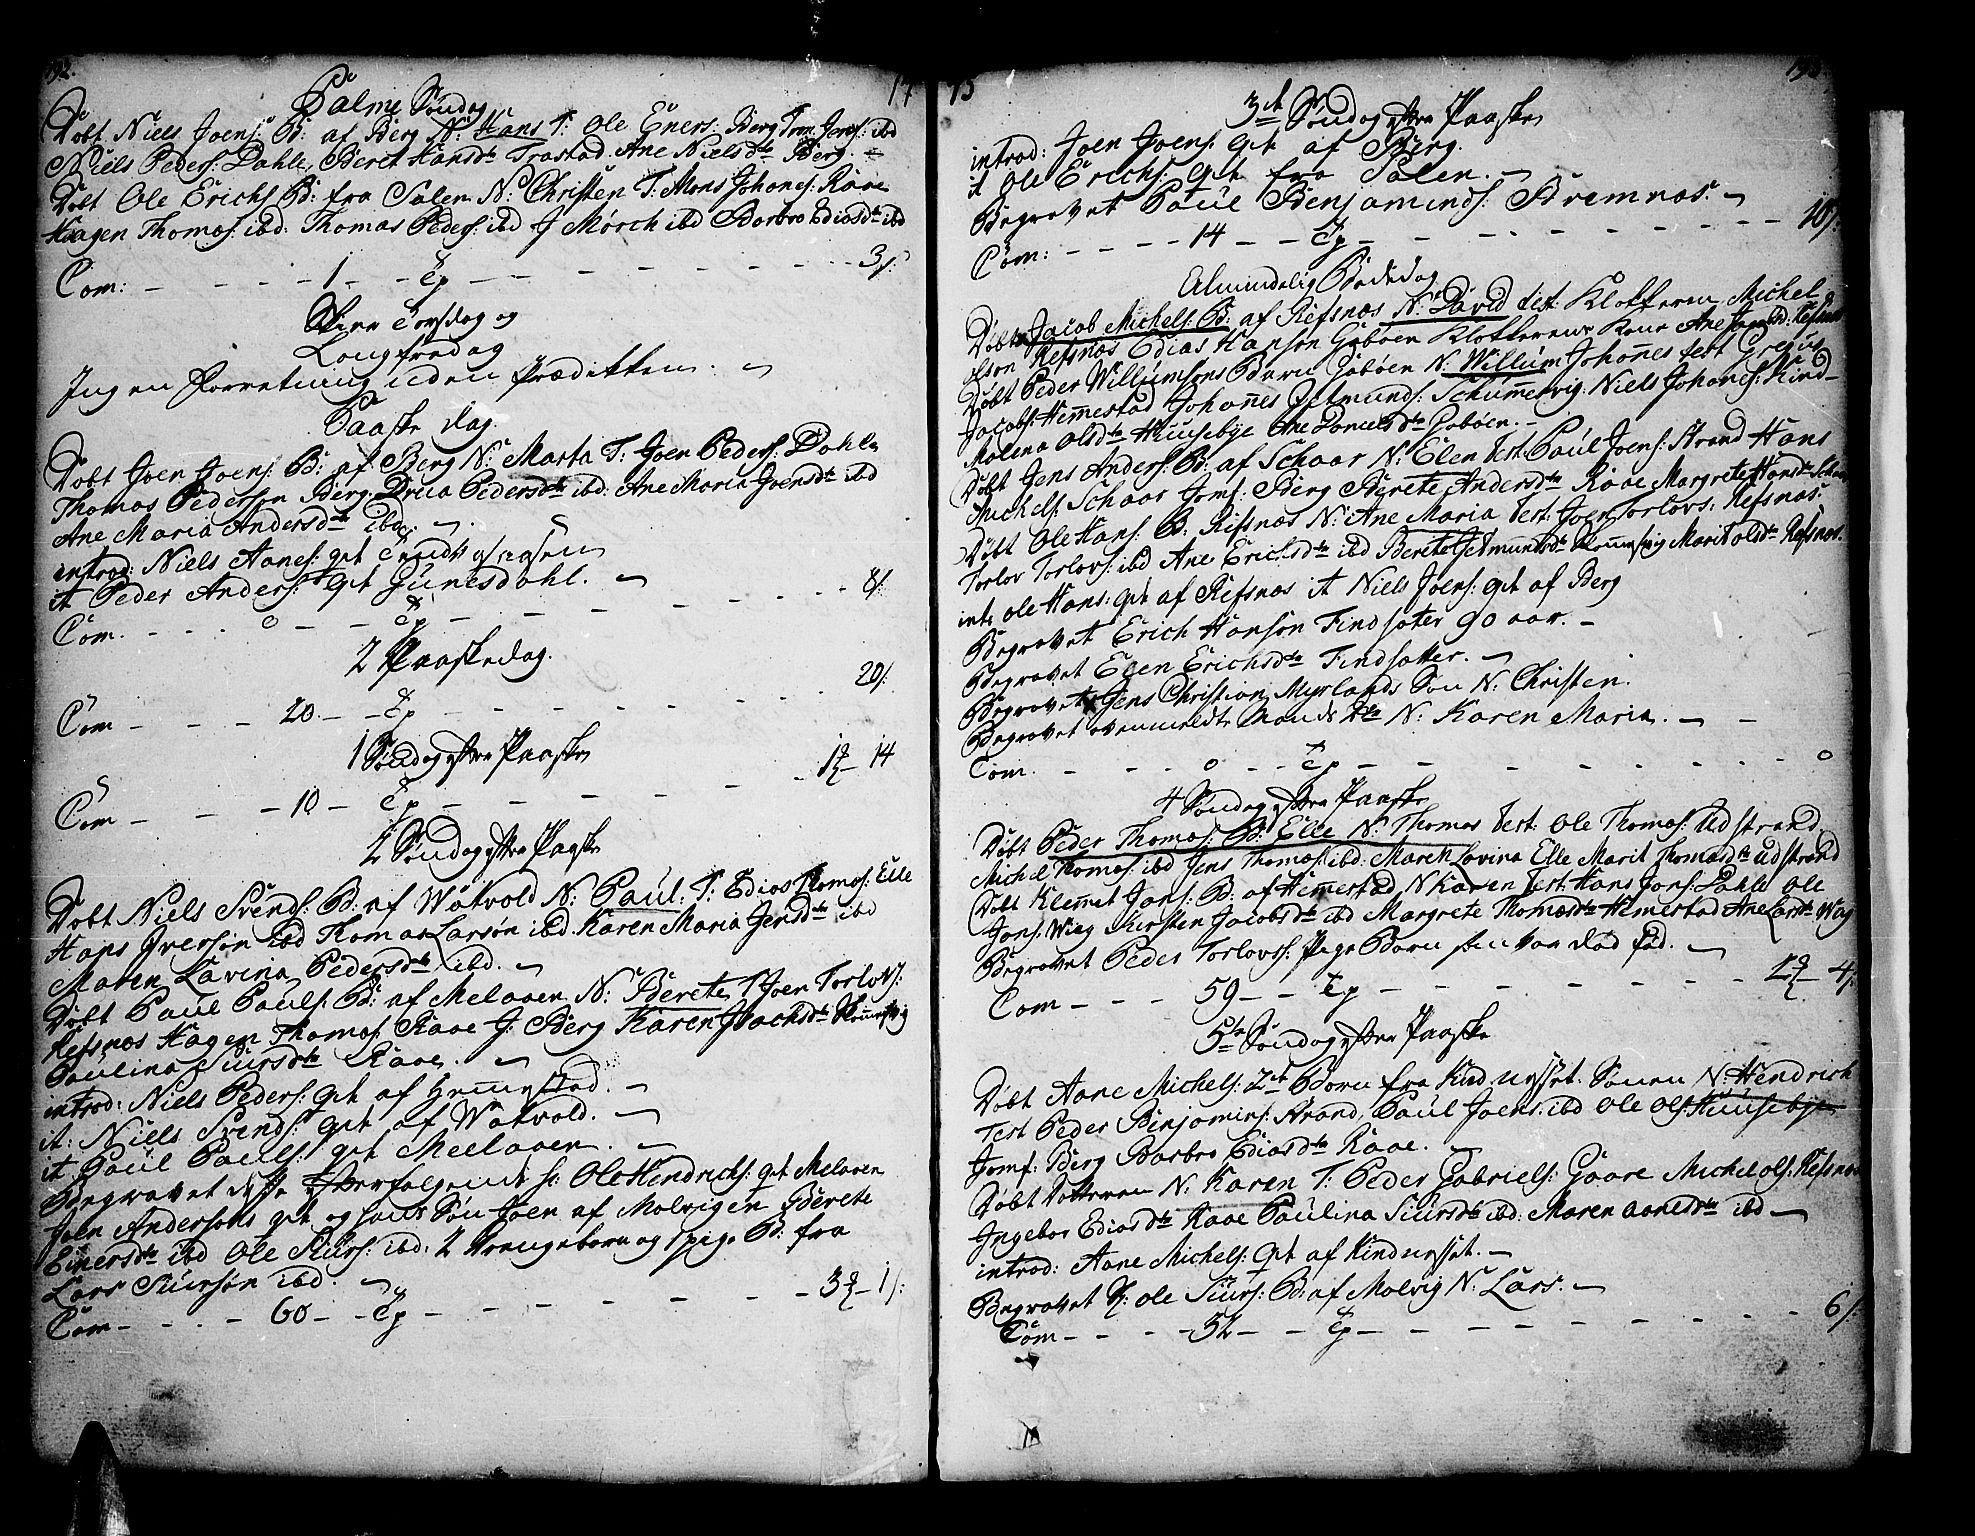 192.
17
Palme Søndag
Døbt Niels Joens: B: af Berg N: Hans T: Ole Eners: Berg Tron Jens: ibd
Niels Peders: Dahle, Beret Hansdtr Trastad Ane Nielsdtr Berg.
Døbt Ole Erichs B: fra Salen N: Christen T: Mons Johanes: Raae
Haagen Thomæs: ibd: Thomas Peders: ibd J Mørch ibd Barbro Ediasdtr ibd
Com: - - - - 1 - - Ep - - - - - - - 3/:
Skiær Torsdag og
Langfredag
Ingen Forretning uden Prædikken.
Paaske dag.
Døbt Joen Joens: B: af Berg N: Marta T: Joen Peders: Dahle
Thomas Pedersen Berg, Drua Pedersdtr ibd: Ane Maria Joensdtr ibd
Ane Maria Andersdtr ibd.
introd: Niels Aanes: qvt
it Peder Anders: qvt Gunesdahl.
Com. - - - 0 - - Ep - - - - - 8/
2 Paaskedag.
20/:
Com - - - 20 - - Ep - - - - -
1 Søndag efter Paaske
- 1 - 14
Com - - - 10 - Ep - - - -
2 Søndag efter Paaske
Døbt Niels Svends: B: af Watvold N: Paul: T: Edias Thomos: Elle
Hans Iversøn ibd Thomas Larsøn ibd Karen Maria Jensdtr ibd
Maren Lavina Pedersdtr ibd.
Døbt Paul Pauls: B: af Melaaen N: Berete T Joen Torlovs:
Refsnæs Hagen Thomos: Raae J: Berg Karen Isachsdtr
Paulina Siursdtr Raae.
introd: Niels Peders: qvt af Hemestad.
it: Niels Svends: qvt af Watvold.
it Paul Pauls: qvt Meelaaen.
Begravet disse efterfølgende s: Ole Hendrichs: qvt Melaaen
Joen Andersøns qvt og hans Søn Joen af Malvigen Berete
Einersdtr ibd Ole Siurs: ibd: 2 Drengebørn og 1 pige B: fra
Lars Siursøn ibd.
Com - - - - 60 - - Ep - - - - - - 3 - 1/:
75
193.
3de Søndag efter Paaske
introd: Joen Joens: qvt af Berg.
it Ole Erichs: qvt fra Salen.
Begravet Paul Benjamins: Bremnæs.
Com: - - - - 14 - - Ep - - - - - - - 10/:
Almindelig Bededag
Døbt Jacob Michels: B: af Refsnæs N: David test: Klokkeren Michel
Refsnæs Edias Hanson Gobøen Klokkerens Kone Ane
Døbt Peder Willumsøns Barn Gobøen N: Willum Johannes
Jacobs: Hemestad Johannes Schummervig: Niels Johanes: Kind-
Malena Olsdtr Huusebye Ane Danielsdtr Gobøen.
Døbt Jens Anders: B: af Schaar N: Elen test: Paul Joens: Strand Hans
Michels: Schaar Jomf: Berg Berete Andersdtr Raae Margrete Hansdtr
Døbt Ole Hans: B: Refsnæs N: Ane Maria test: Joen Torlovs: Refsnæs:
Torlov Torlovs: ibd Ane Erichsdtr ibd Berete Marit Olsdtr Refsnæs.
int: Ole Hans: qvt af Refsnæs it Niels Joens: qvt af Berg
Begravet Erich Hansøn Findsæter 90 aar.
Begravet Elen Erichsdtr Findsætter.
Begravet Jens Christian Myrlands Søn N: Christen.
Begravet ovenmeldte Mands N: Karen Maria.
Com. - - - 0 - - Ep - - - - - - - - 0
4 Søndag efter Paaske
Døbt Peder Thomos: B: Elle N: Thomas test: Ole Thomos: Udstrand
Michel Thomos: ibd Jens Thomos: ibd: Maren Lavina Elle Marit Thomasdtr Udstrand
Døbt Klemet Jons: B: af Hemestad N Karen test: Hans Jons: Dahle Ole
Jons: Wiig Kirsten Jacobsdtr ibd Margrete Thomasdtr Hemestad Ane Larsdtr Wiig
Begravet Peder Torlovs: Pige Barn som var død fød.
Com - - - 59 - - Ep - - - - - - - 2 - 4/:
5te Søndag efter Paaske
Døbt Aane Michels: 2de Børn fra Kind Sønen N: Hendrich
Test Peder Binjamins: Strand, Paul Joens: ibd Ole Ols: Huusebye
Jomf: Berg Barbro Ediasdtr Raae.
Døbt Datteren N: Karen T: Peder Gabriels: Gaare Michel Ols: Refsnæs
Ingebor Ediasdtr Raae Paulina Siursdtr ibd: Maren Aanesdtr ibd
introd: Aane Michels: qvt af Kind
Begravet Ole Siurs: B: af Malvig N: Lars.
Com - - - - 52 - - Ep - - - - - - - 6/: